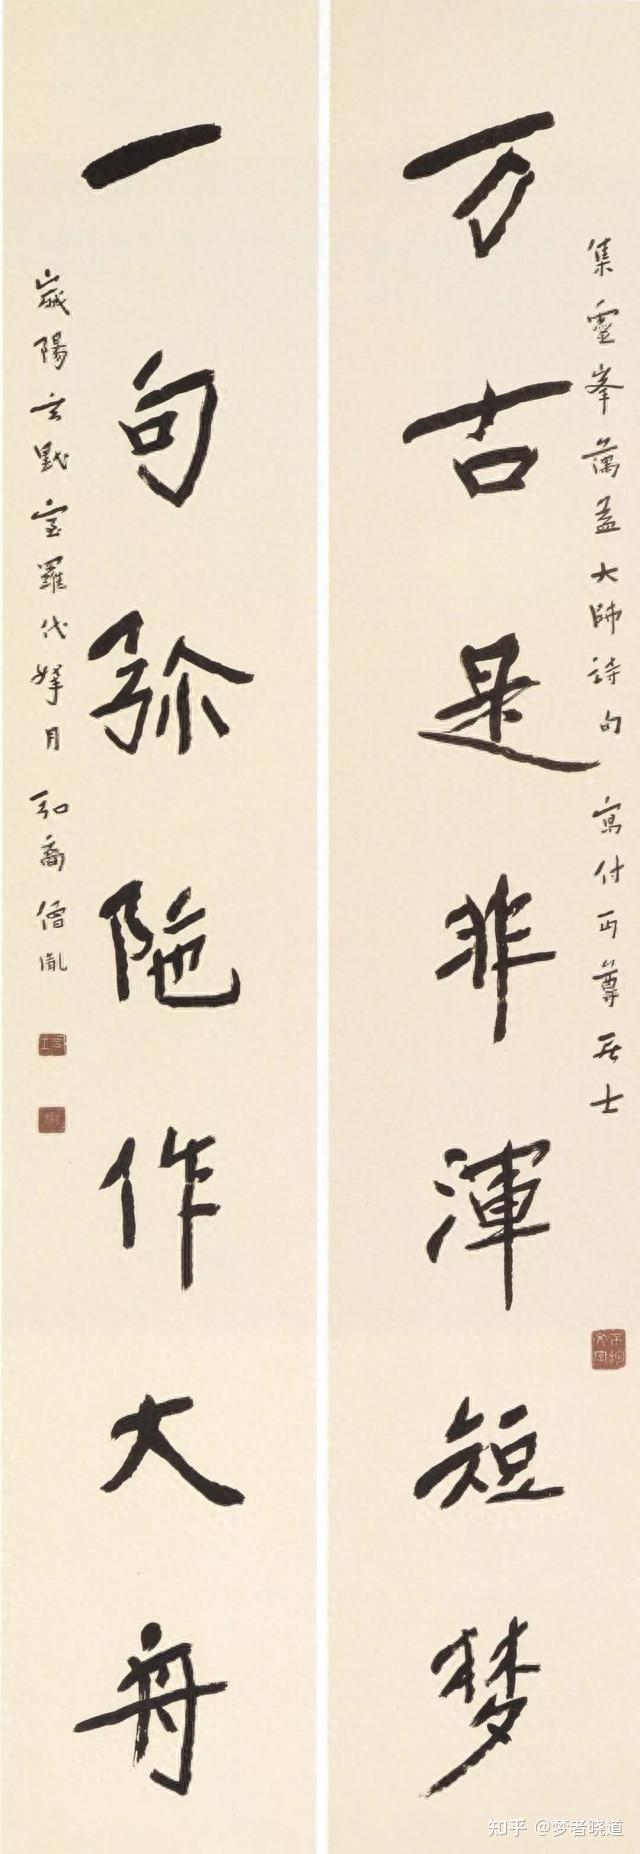 集靈峯蕅益大師詩句 寫付丏尊居士
万古是非渾短梦
一句弥陁作大舟
歲陽玄黓室羅伐拏月 弘裔僧胤
知乎 @梦者晓道